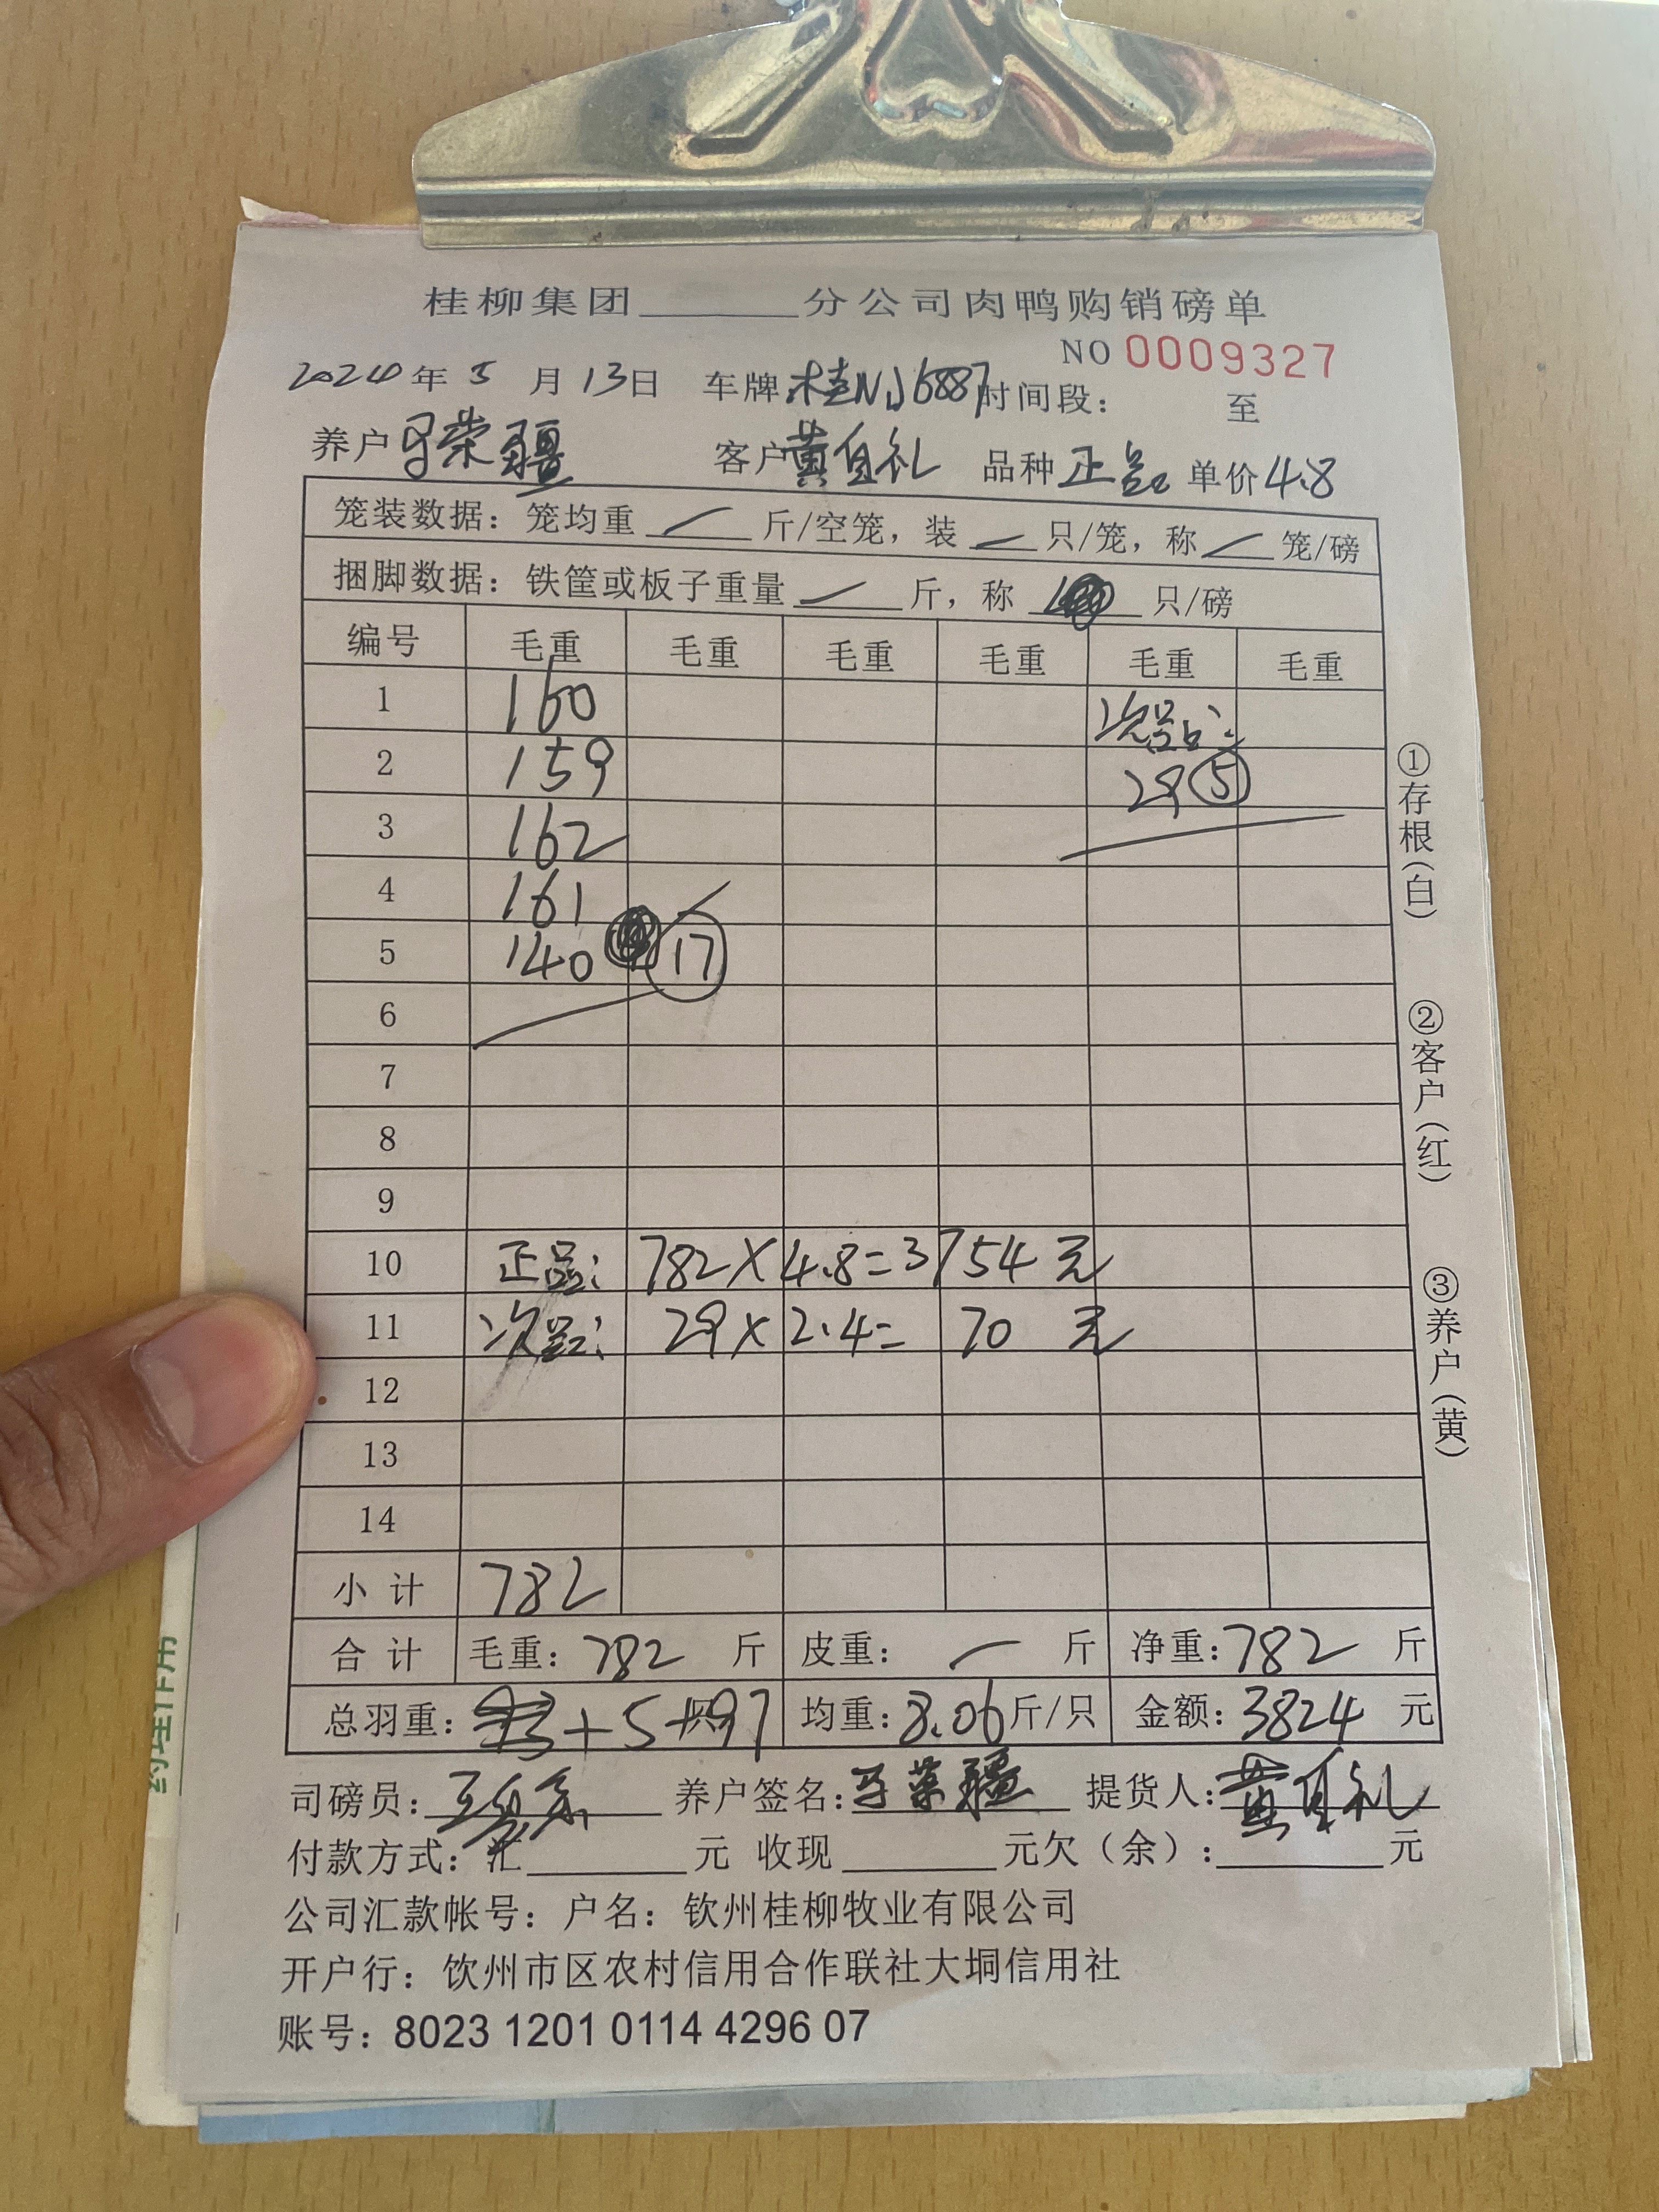 桂柳集团________分公司肉鸭购销磅单
NO 0009327
2024年 5 月 13日 车牌 桂NJ6887 时间段: 至
养户 荣疆 客户 黄自礼 品种 正品 单价 4.8
笼装数据: 笼均重 / 斤/空笼, 装 / 只/笼, 称 / 笼/磅
捆脚数据: 铁筐或板子重量 / 斤, 称 只/磅
编号 毛重 毛重 毛重 毛重 毛重 毛重
1 160 次品:
2 159 29 ⑤
3 162
4 161
5 140 ⑰
6
7
8
9
10 正品: 782×4.8=3754 元
11 次品: 29×2.4= 70 元
12
13
14
小 计 782
合 计 毛重: 782 斤 皮重: / 斤 净重: 782 斤
总羽重: +5 只97 均重: 8.06 斤/只 金额: 3824 元
司磅员: 养户签名: 荣疆 提货人: 黄自礼
付款方式: 汇________元 收现________元欠(余):________元
公司汇款帐号: 户名: 钦州桂柳牧业有限公司
开户行: 钦州市区农村信用合作联社大垌信用社
账号: 8023 1201 0114 4296 07
①存根(白)
②客户(红)
③养户(黄)